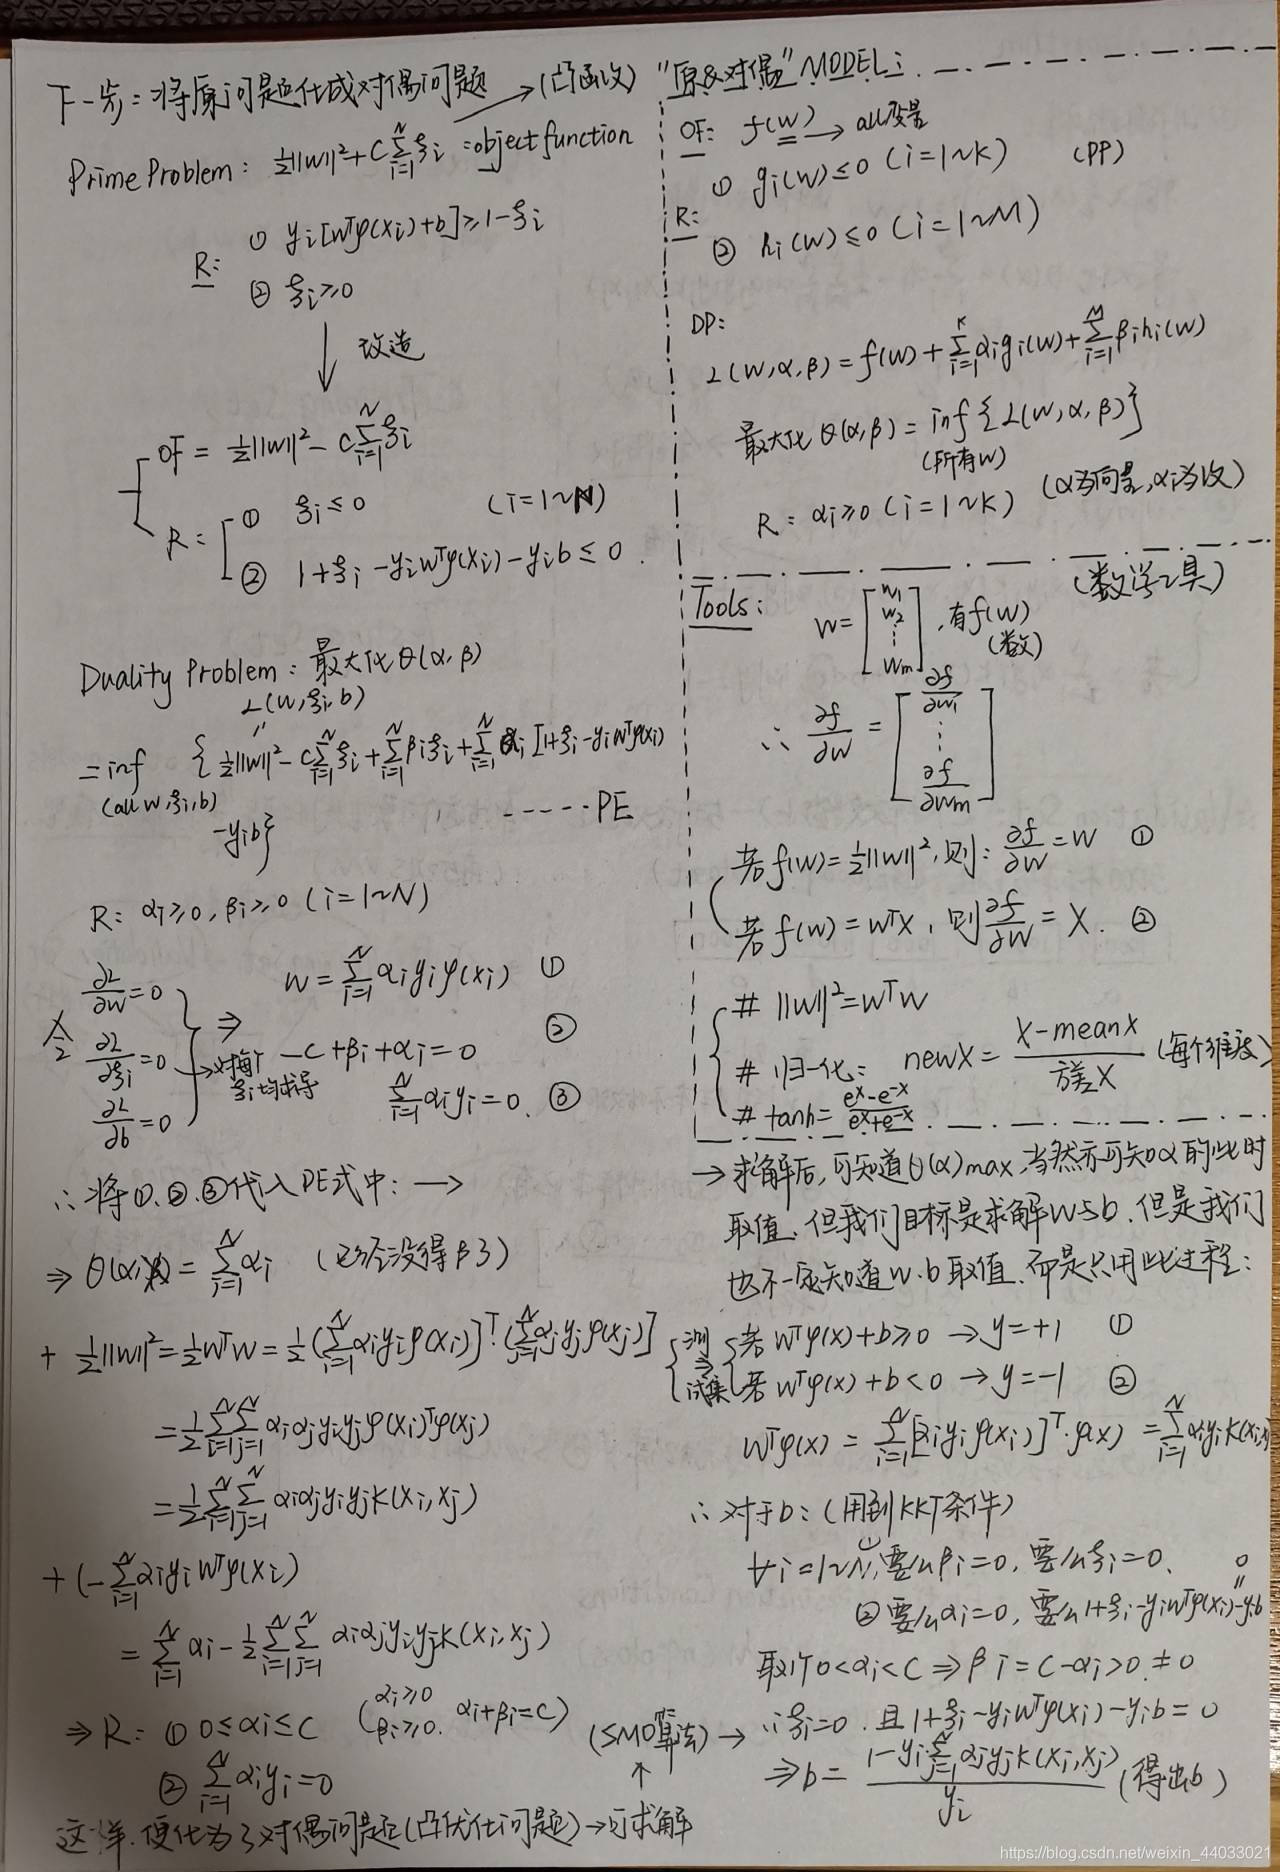 下一步：将原问题化成对偶问题 → (凸函数)
Prime Problem: ½||W||² + C∑_{i=1}^{N} ξi = object function
R: ① yi[WᵀΨ(Xi)+b] ≥ 1-ξi
② ξi ≥ 0
↓ 改造
OF = ½||W||² - C∑_{i=1}^{N} ξi
R: ① ξi ≤ 0 (i=1~N)
② 1+ξi-yiWᵀφ(Xi)-yib ≤ 0.
Duality Problem: 最大化 θ(α,β)
L(W,ξi,b)
= inf {½||W||² - C∑_{i=1}^{N} ξi + ∑_{i=1}^{N} βiξi + ∑_{i=1}^{N} αi[1+ξi-yiWᵀφ(Xi)
(all W,ξi,b)
-yib} ······PE
R: αi≥0, βi≥0 (i=1~N)
令 ∂L/∂W=0 ⇒ W=∑_{i=1}^{N} αiyiφ(Xi) ①
∂L/∂ξi=0 → 对每个ξi均求导 -C+βi+αi=0 ②
∂L/∂b=0 ∑_{i=1}^{N} αiyi=0. ③
∴将①.②.③代入PE式中: →
⇒ θ(α) = ∑_{i=1}^{N} αi (已经没得β了)
+ ½||W||² = ½WᵀW = ½[∑_{i=1}^{N} αiyiφ(Xi)]ᵀ·[∑_{j=1}^{N} αjyjφ(Xj)]
= ½∑_{i=1}^{N}∑_{j=1}^{N} αiαjyiyjφ(Xi)ᵀφ(Xj)
= ½∑_{i=1}^{N}∑_{j=1}^{N} αiαjyiyjK(Xi,Xj)
+ (-∑_{i=1}^{N} αiyiWᵀφ(Xi)
= ∑_{i=1}^{N} αi - ½∑_{i=1}^{N}∑_{j=1}^{N} αiαjyiyjK(Xi,Xj)
⇒ R: ① 0≤αi≤C (αi≥0 βi≥0. αi+βi=C)
② ∑_{i=1}^{N} αiyi=0
(SMO算法) →
↑
这样.便化为了对偶问题(凸优化问题)→可求解
"原&对偶" MODEL:
OF: f(W) → all变量
R: ① gi(W)≤0 (i=1~K) (PP)
② hi(W)≤0 (i=1~M)
DP:
L(W,α,β) = f(W) + ∑_{i=1}^{K} αigi(W) + ∑_{i=1}^{M} βihi(W)
最大化 θ(α,β) = inf {L(W,α,β)}
(所有W)
R: αi≥0 (i=1~K) (α为向量,αi为数)
Tools: (数学工具)
W=[W1 W2 ⋮ Wm], 有f(W)
(数)
∴ ∂f/∂W = [∂f/∂W1 ⋮ ∂f/∂Wm]
若f(W)=½||W||²,则: ∂f/∂W=W ①
若f(W)=WᵀX, 则∂f/∂W=X. ②
# ||W||²=WᵀW
# 归一化: newX = (X-meanX)/方差X (每个维度)
# tanh = (eˣ-e⁻ˣ)/(eˣ+e⁻ˣ)
→ 求解后,可知道θ(α)max,当然亦可知α的此时
取值.但我们目标是求解W与b.但是我们
也不一定知道W.b取值.而是只用此过程:
测试集⇒ 若WᵀΨ(X)+b≥0 → y=+1 ①
若WᵀΨ(X)+b<0 → y=-1 ②
Wᵀφ(X) = ∑_{i=1}^{N}[αiyiφ(Xi)]ᵀ·φ(X) = ∑_{i=1}^{N} αiyiK(Xi,X)
∴对于b: (用到KKT条件)
∀i=1~N,①要么βi=0,要么ξi=0.
②要么αi=0,要么1+ξi-yiWᵀφ(Xi)-yib=0
取1个0<αi<C ⇒ βi=C-αi>0 ≠0
∴ξi=0.且1+ξi-yiWᵀφ(Xi)-yib=0
⇒ b = (1-yi∑_{j=1}^{N} αjyjK(Xi,Xj))/yi (得出b)
https://blog.csdn.net/weixin_44033021